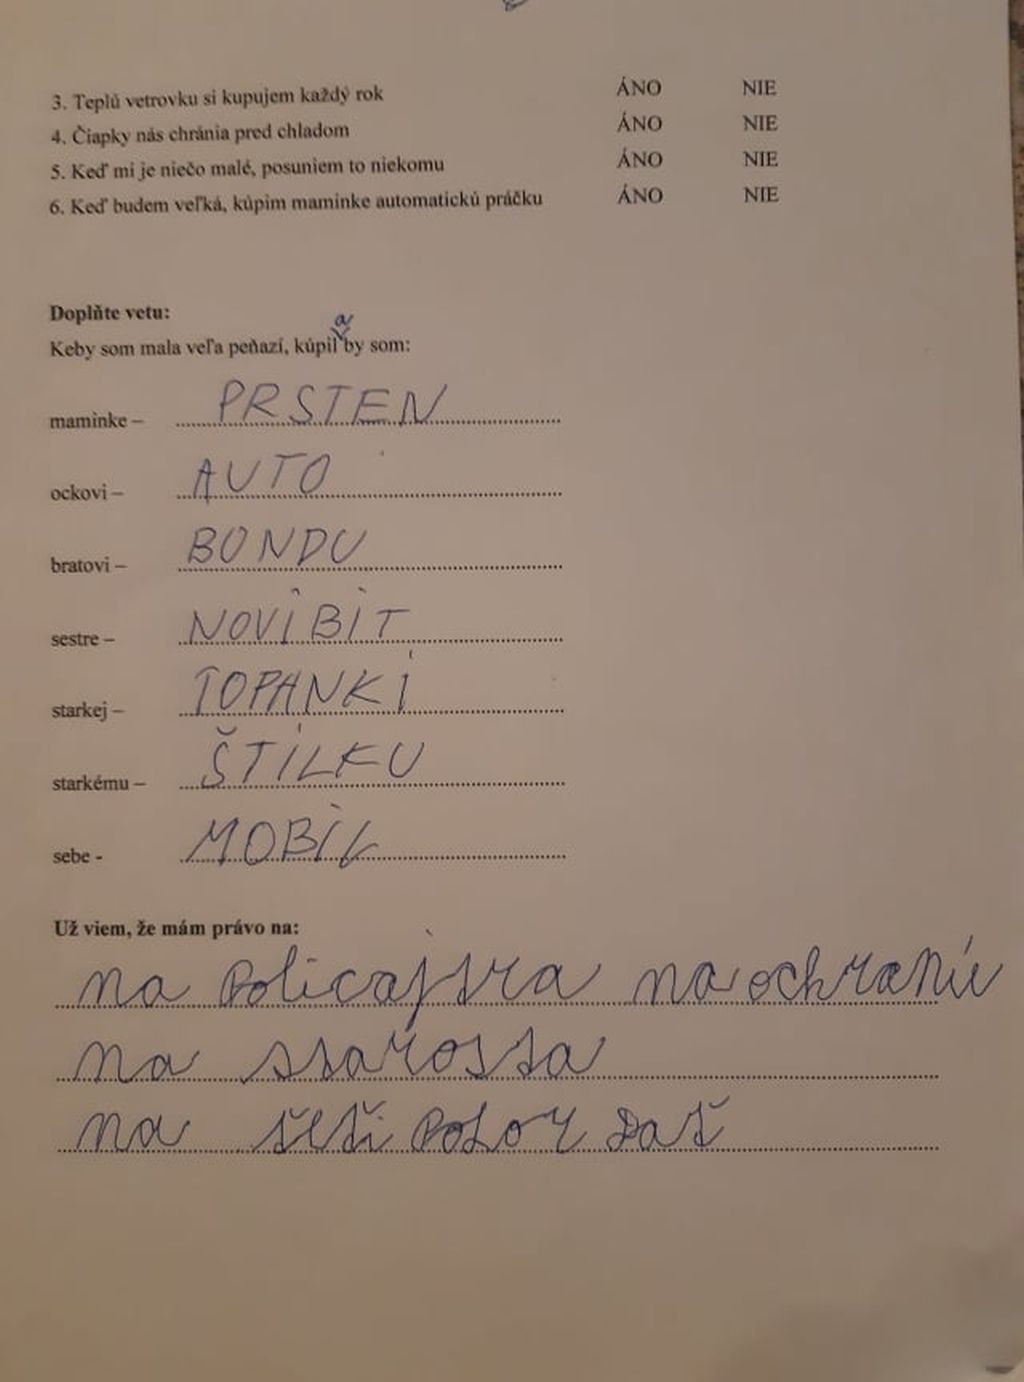 3. Teplú vetrovku si kupujem každý rok ÁNO NIE
4. Čiapky nás chránia pred chladom ÁNO NIE
5. Keď mi je niečo malé, posuniem to niekomu ÁNO NIE
6. Keď budem veľká, kúpim maminke automatickú práčku ÁNO NIE
Doplňte vetu:
a
Keby som mala veľa peňazí, kúpil by som:
maminke – PRSTEN
ockovi – AUTO
bratovi – BUNDU
sestre – NOVÍ BIT
starkej – TOPANKI
starkému – ŠTÍLKU
sebe - MOBIL
Už viem, že mám právo na:
na Policajta na ochranú
na starosta
na